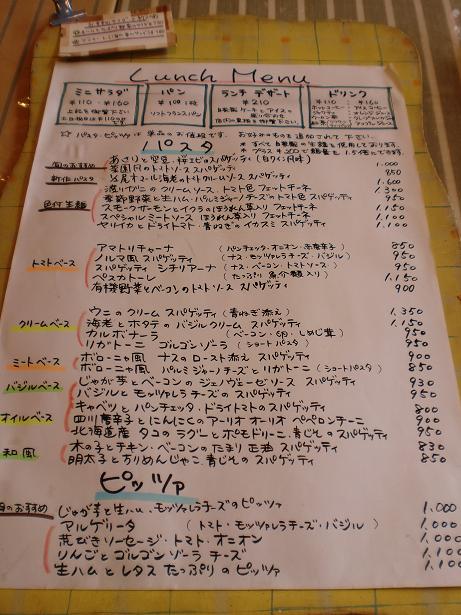 Lunch Menu
ミニサラダ
¥110 ~ ¥160
パン
¥100 1枚
ランチ デザート
¥210
ドリンク
¥110 ~ ¥160
☆ パスタ・ピッツァは単品のお値段です。 お好みのものを追加されて下さい。
パスタ
※ すべて自家製の生麺を使用しております。
※ プラス¥200で麺量を1.5倍にできます。
のおすすめ
あさりと空豆・桜エビのスパゲッティ (白ワイン風味) 1,000
新作パスタ
菜園風のトマトソース スパゲッティ 850
オマール海老のトマトクリームソース スパゲッティ 1,600
色付生麺
渡りガニのクリームソース・トマト色 フェットチーネ 1,300
季節野菜と生ハム・パルミジャーノチーズのトマト色 スパゲッティ 950
スモークサーモンとイクラのほうれん草入り フェットチーネ 1,150
スペシャルミートソース ほうれん草入り フェットチーネ 1,100
ヤリイカとドライトマト・青ねぎの イカスミ スパゲッティ 1,150
トマトベース
アマトリチャーナ (パンチェッタ・オニオン・赤唐辛子) 850
ノルマ風スパゲッティ (ナス・モッツァレラチーズ・バジル) 950
スパゲッティ シチリアーナ (ナス・ベーコン・トマトソース) 950
ペスカトーレ (たっぷり魚介類入り) 1,150
有機野菜とベーコンのトマトソース スパゲッティ 900
クリームベース
ウニのクリーム スパゲッティ (青ねぎ添え) 1,350
海老とホタテのバジルクリーム スパゲッティ 1,150
カルボナーラ (ベーコン・卵・しめじ茸) 950
リガトーニ ゴルゴンゾーラ (ショートパスタ) 950
ミートベース
ボローニャ風 ナスのロースト添え スパゲッティ 900
ボローニャ風 パルミジャーノチーズとリガトーニ (ショートパスタ) 850
バジルベース
じゃが芋とベーコンのジェノヴェーゼソース スパゲッティ 930
バジルとモッツァレラチーズの スパゲッティ 950
オイルベース
キャベツとパンチェッタ・ドライトマトのスパゲッティ 800
四川唐辛子とにんにくのアーリオ オーリオ ペペロンチーニ 900
北海道産 タコのラグーとポモドリーニ、青じそのスパゲッティ 950
和風
木の子とチキン・ベーコンのたまり正油 スパゲッティ 830
明太子とちりめんじゃこ、青じその スパゲッティ 850
ピッツァ
のおすすめ
じゃが芋と生ハム・モッツァレラチーズのピッツァ 1,000
アルゲリータ (トマト・モッツァレラチーズ・バジル) 1,000
荒びきソーセージ・トマト・オニオン 1,000
りんごとゴルゴンゾーラ チーズ 1,100
生ハムとレタス たっぷりのピッツァ 1,100